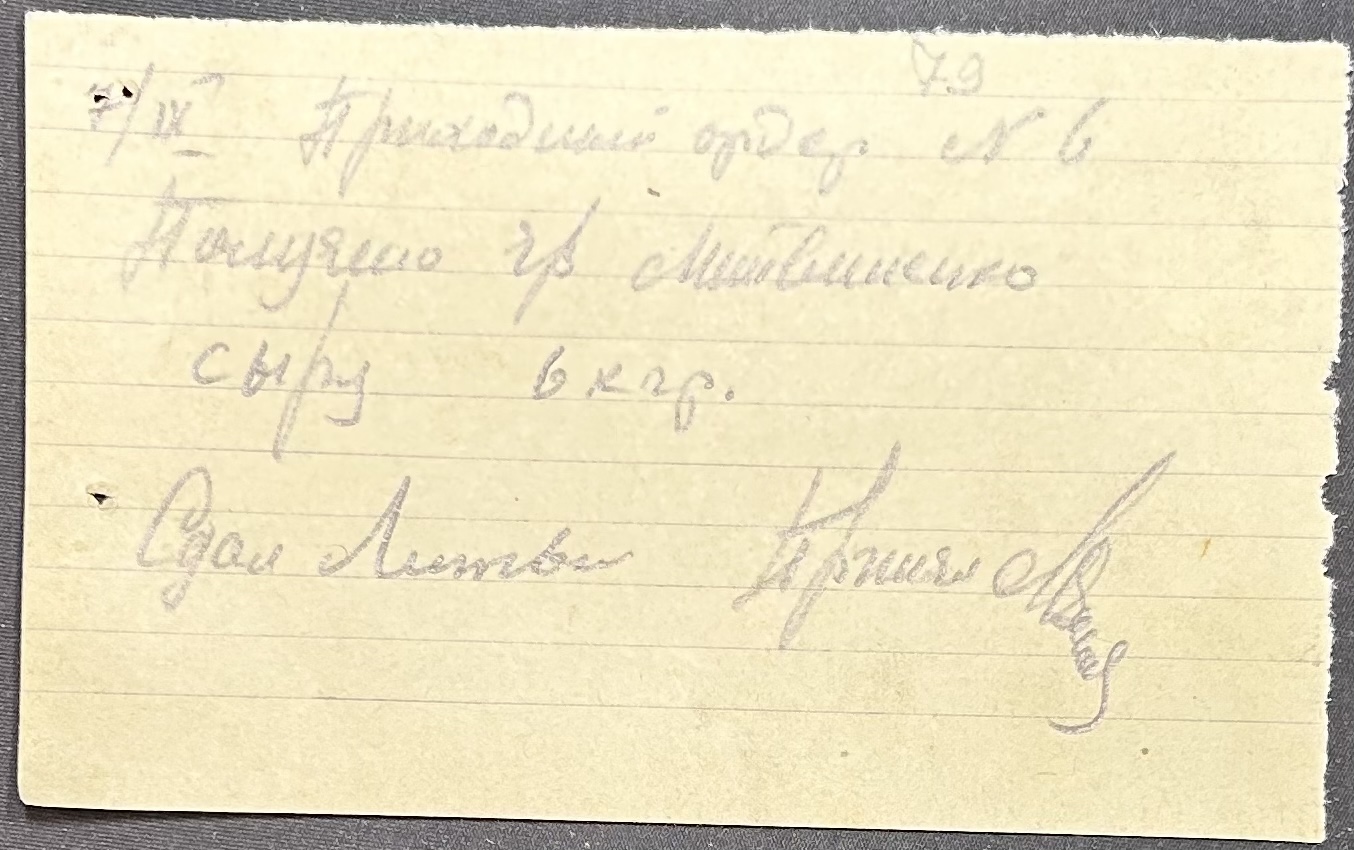 79
7/IX Приходный ордер № 6
Получено гр Литвиненко
сыру 6 кгр.
Сдал Литви Принял